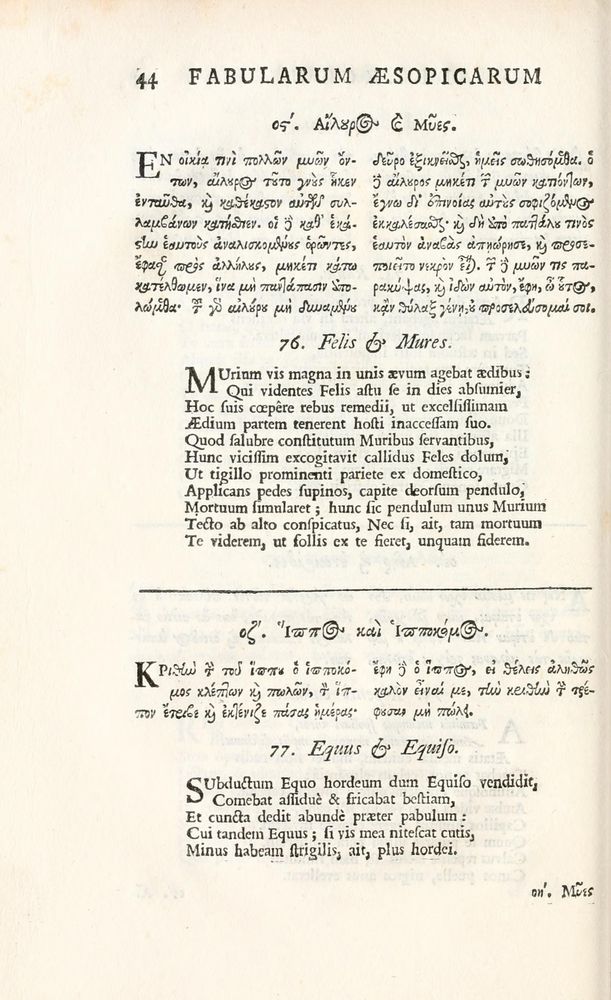 44 FABULARUM ÆSOPICARUM
οϛʹ. Αἴλουρος καὶ Μῦες.
ἘΝ οἰκίᾳ τινὶ πολλῶν μυῶν ὄν-
των, αἴλουρος τοῦτο γνοὺς ἧκεν
ἐνταῦθα, καὶ καθέκαστον αὐτῶν συλ-
λαμβάνων κατήσθιεν. οἱ δὲ καθ' ἑκά-
στην ἑαυτοὺς ἀναλισκομένους ὁρῶντες,
ἔφασαν πρὸς ἀλλήλους, μηκέτι κάτω
κατέλθωμεν, ἵνα μὴ παντάπασιν ἀπο-
λώμεθα· τοῦ γὰρ αἰλούρου μὴ δυναμένου
δεῦρο ἐξικνεῖσθαι, ἡμεῖς σωθησόμεθα. ὁ
δὲ αἴλουρος μηκέτι τῶν μυῶν κατιόντων,
ἔγνω δι' ἐπινοίας αὐτοὺς σοφισάμενος
ἐκκαλέσασθαι· καὶ δὴ ἀπὸ παττάλου τινὸς
ἑαυτὸν ἀναβὰς ἀπῃώρησε, καὶ προσε-
ποιεῖτο νεκρὸν εἶναι. τῶν δὲ μυῶν τις πα-
ρακύψας, καὶ ἰδὼν αὐτὸν, ἔφη, ὦ οὗτος,
κἂν θύλαξ γένῃ, οὐ προσελεύσομαί σοι.
76. Felis & Mures.
MUrium vis magna in unis ævum agebat ædibus:
Qui videntes Felis astu se in dies absumier,
Hoc suis cœpêre rebus remedii, ut excelsissimam
Ædium partem tenerent hosti inaccessam suo.
Quod salubre constitutum Muribus servantibus,
Hunc vicissim excogitavit callidus Feles dolum,
Ut tigillo prominenti pariete ex domestico,
Applicans pedes supinos, capite deorsum pendulo,
Mortuum simularet; hunc sic pendulum unus Murium
Tecto ab alto conspicatus, Nec si, ait, tam mortuum
Te viderem, ut follis ex te fieret, unquam fiderem.
οζʹ. Ἵππος καὶ Ἱπποκόμος.
ΚΡιθὴν τὴν τοῦ ἵππου ὁ ἱπποκό-
μος κλέπτων καὶ πωλῶν, τὸν ἵπ-
πον ἔτριβε καὶ ἐκτένιζε πάσας ἡμέρας·
ἔφη δὲ ὁ ἵππος, εἰ θέλεις ἀληθῶς
καλὸν εἶναί με, τὴν κριθὴν τὴν τρέ-
φουσαν μὴ πώλει.
77. Equus & Equiso.
SUbductum Equo hordeum dum Equiso vendidit,
Comebat assiduè & fricabat bestiam,
Et cuncta dedit abundè præter pabulum:
Cui tandem Equus; si vis mea nitescat cutis,
Minus habeam strigilis, ait, plus hordei.
οηʹ. Μῦες